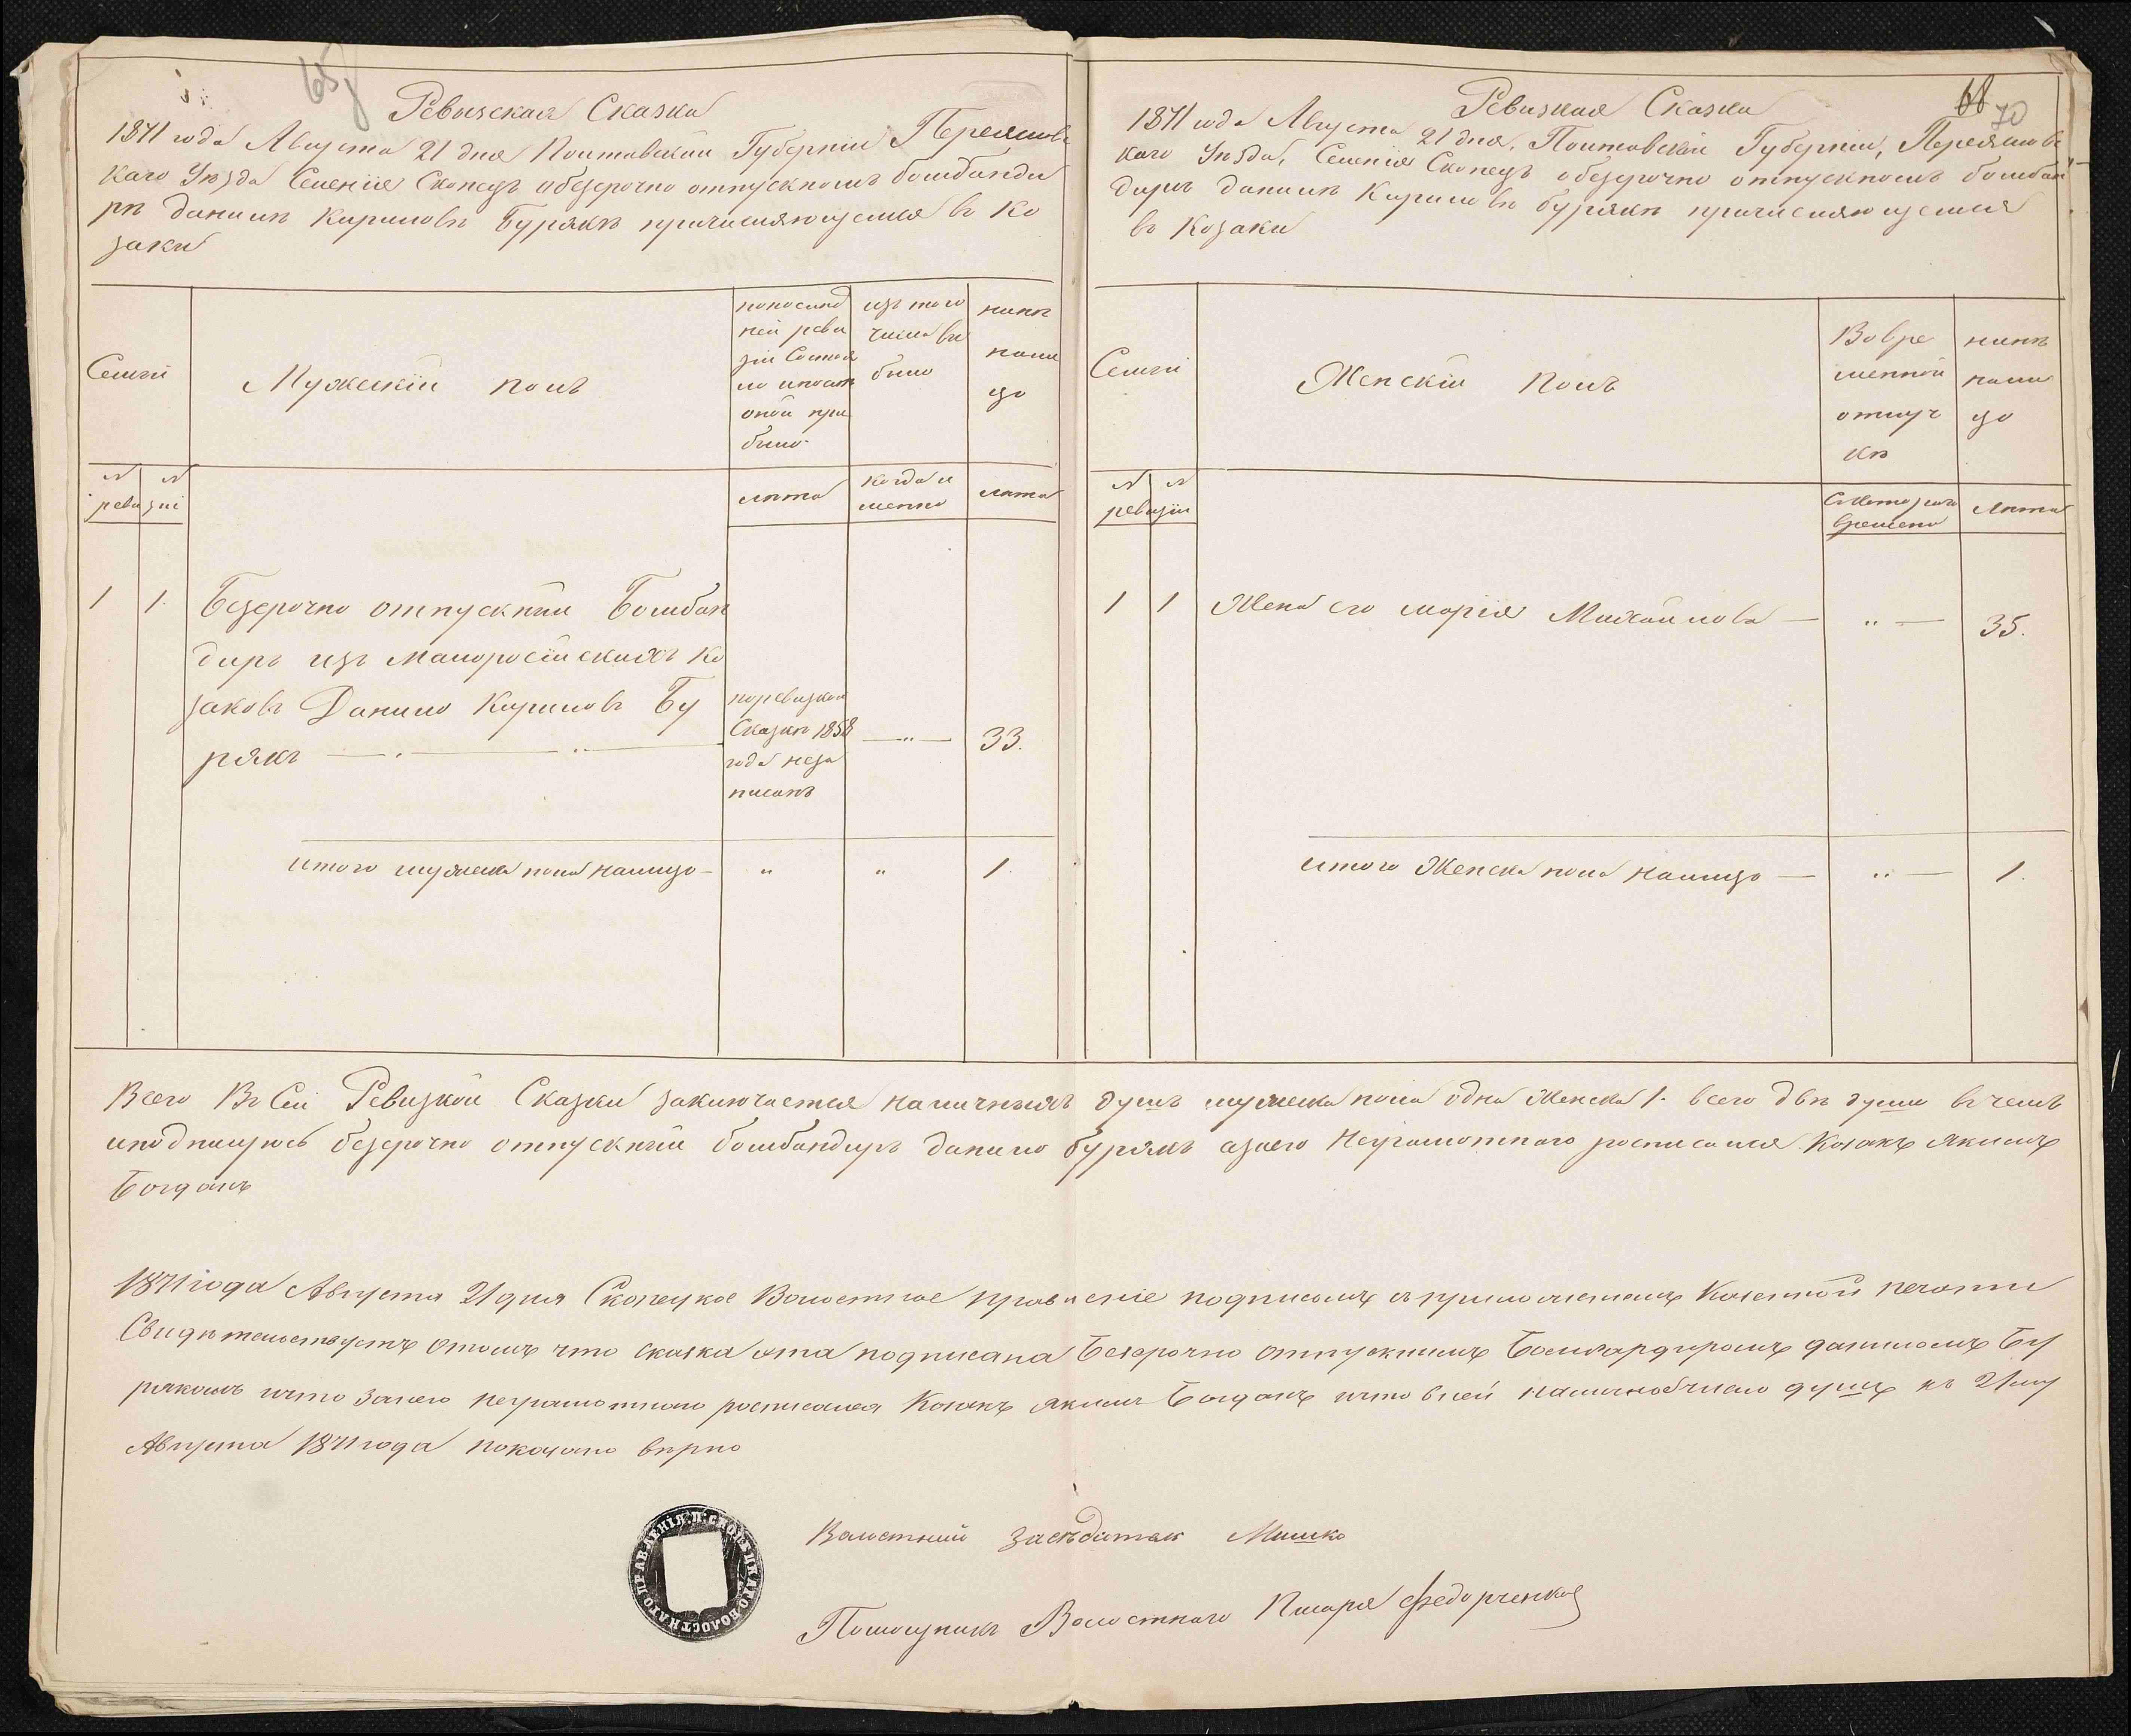 65
Ревизская Сказка
1871 года Августа 21 дня Полтавской Губерніи Переяслов
каго Уѣзда Селенія Скопецъ обезсрочно отпускномъ бомбанди
рѣ Данилѣ Кириловѣ Бурякѣ причисляющемся въ Ко
заки
Семьи
Мужескій полъ
попослед
ней реви
зіи Состоя
ло ипосля
оной при
было
изъ того
числа вы
было
нынѣ
нали
цо
№ №
реви зіи
лѣта
когда и
менно
лѣта
1 1. Безсрочно отпускный Бомбан
диръ изъ Малоросійскихъ Ко
заковъ Данило Кириловъ Бу
рякъ
поревизкой
Сказки 1858
года неза
писанъ
— " — 33.
итого мужеска пола налицо — " " 1.
68 70
Ревизкая Сказка
1871 года Августа 21 дня, Полтавской Губерніи, Переяслов
каго Уѣзда, Селенія Скопецъ обезсрочно отпускномъ бомбан
дирѣ Данилѣ Кириловѣ бурякѣ причисляющемся
въ Козаки
Семьи
Женскій Полъ
Вовре
менной
отлуч
кѣ
нынѣ
нали
цо
№ №
ревизіи
Скотораго
времени
лѣта
1 1 Жена его марія Михайлова — " — 35.
итого Женска пола налицо — " — 1.
Всего Въ Сей Ревизкой Сказки заключается наличныхъ душъ мужеска пола одна Женска 1. всего двѣ души вчемъ
иподпишусь безсрочно отпускный бомбандиръ данило бурякъ азаего Неграмотнаго росписался Козакъ Якимъ
Богданъ
1871 года Августа 21 дня Скопецкое Волостное правленіе подписомъ съприложеніемъ Казенной печати
Свидѣтельствуетъ отомъ что сказка эта подписана Безсрочно отпускнымъ Бомбардиромъ даниломъ Бу
рякомъ ичто занего неграмотнаго росписался Козакъ Якимъ Богданъ ичто вней наличное число душъ къ 21му
Августа 1871 года показано вѣрно
П. СКОПЕЦКАГО ВОЛОСТНАГО ПРАВЛЕНІЯ.
Волостный засѣдатель Мишко
Помощникъ Волостнаго Писаря Федорченко